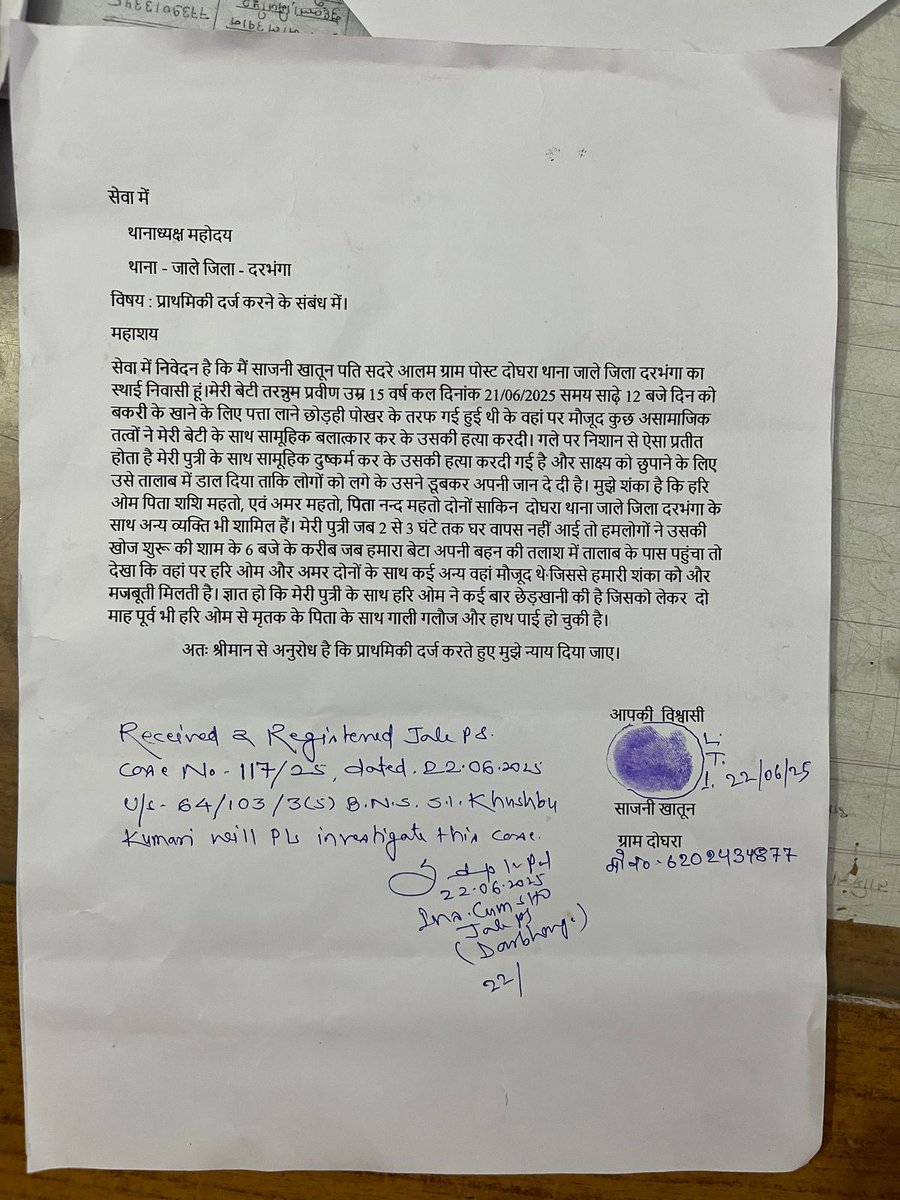 7739013345
सेवा में
थानाध्यक्ष महोदय
थाना - जाले जिला - दरभंगा
विषय : प्राथमिकी दर्ज करने के संबंध में।
महाशय
सेवा में निवेदन है कि मैं साजनी खातून पति सदरे आलम ग्राम पोस्ट दोघरा थाना जाले जिला दरभंगा का
स्थाई निवासी हूं।मेरी बेटी तरन्नुम प्रवीण उम्र 15 वर्ष कल दिनांक 21/06/2025 समय साढ़े 12 बजे दिन को
बकरी के खाने के लिए पत्ता लाने छोड़ही पोखर के तरफ गई हुई थी के वहां पर मौजूद कुछ असामाजिक
तत्वों ने मेरी बेटी के साथ सामूहिक बलात्कार कर के उसकी हत्या करदी। गले पर निशान से ऐसा प्रतीत
होता है मेरी पुत्री के साथ सामूहिक दुष्कर्म कर के उसकी हत्या करदी गई है और साक्ष्य को छुपाने के लिए
उसे तालाब में डाल दिया ताकि लोगों को लगे के उसने डूबकर अपनी जान दे दी है। मुझे शंका है कि हरि
ओम पिता शशि महतो, एवं अमर महतो, पिता नन्द महतो दोनों साकिन दोघरा थाना जाले जिला दरभंगा के
साथ अन्य व्यक्ति भी शामिल हैं। मेरी पुत्री जब 2 से 3 घंटे तक घर वापस नहीं आई तो हमलोगों ने उसकी
खोज शुरू की शाम के 6 बजे के करीब जब हमारा बेटा अपनी बहन की तलाश में तालाब के पास पहुंचा तो
देखा कि वहां पर हरि ओम और अमर दोनों के साथ कई अन्य वहां मौजूद थे.जिससे हमारी शंका को और
मजबूती मिलती है। ज्ञात हो कि मेरी पुत्री के साथ हरि ओम ने कई बार छेड़खानी की है जिसको लेकर दो
माह पूर्व भी हरि ओम से मृतक के पिता के साथ गाली गलौज और हाथ पाई हो चुकी है।
अतः श्रीमान से अनुरोध है कि प्राथमिकी दर्ज करते हुए मुझे न्याय दिया जाए।
आपकी विश्वासी
L.T.I. 22/06/25
साजनी खातून
ग्राम दोघरा
मो०न०-6202434877
Received & Registered Jale PS.
Case No-117/25, dated.22.06.2025
U/S-64/103/3(5) B.N.S. S.I. Khushbu
Kumari will Pls investigate this case.
22.06.2025
Ins. Cum SHO
Jale PS
(Darbhanga)
22/